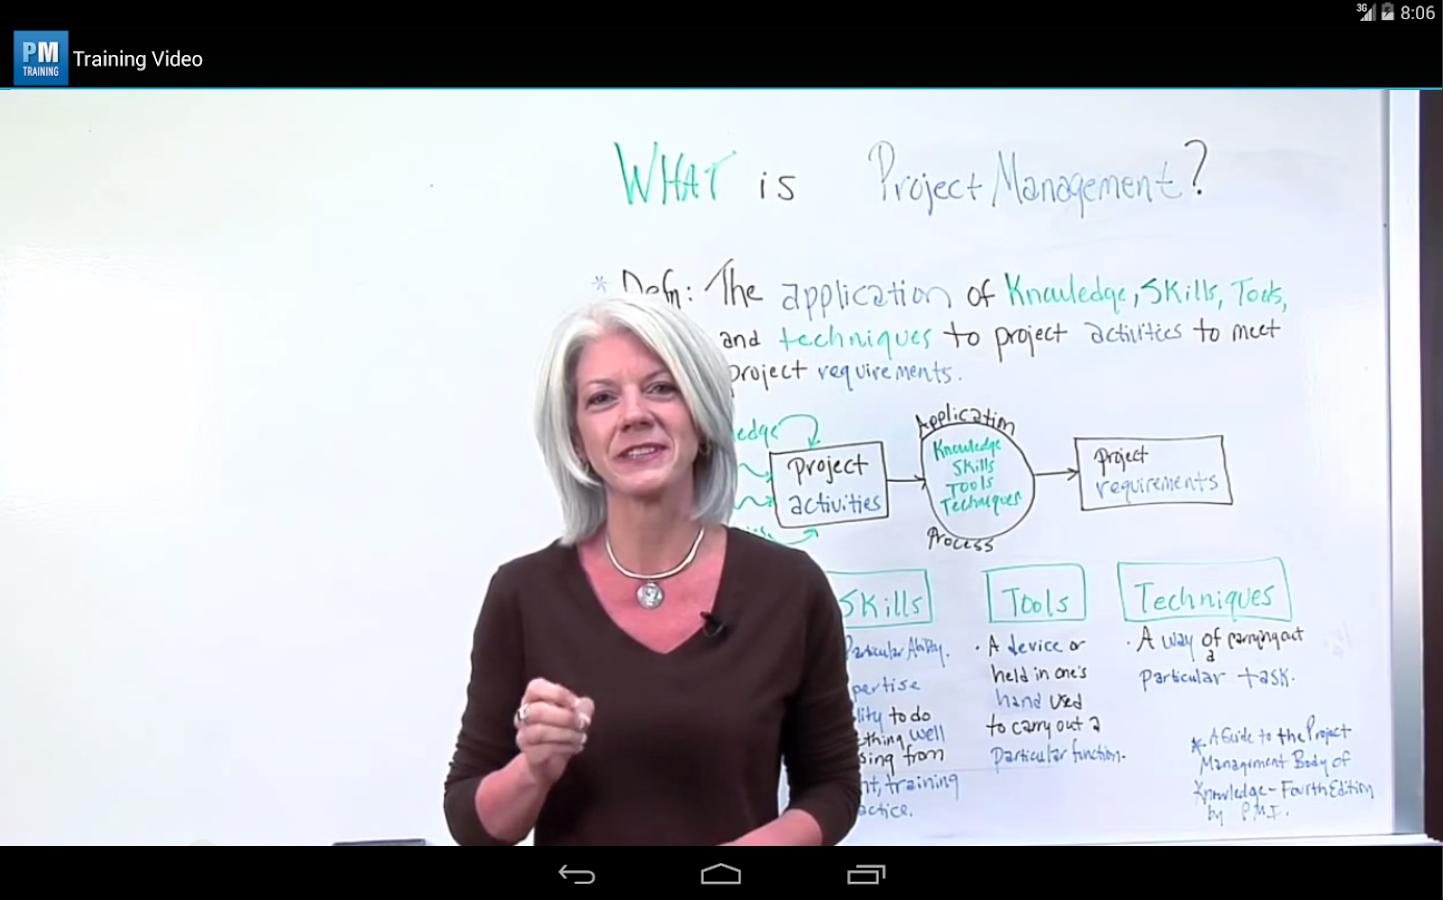 3G 8:06
PM
TRAINING
Training Video
WHAT is Project Management?
* Defn: The application of Knowledge, Skills, Tools,
and techniques to project activities to meet
project requirements.
edge
Project
activities
Application
Knowledge
Skills
Tools
Techniques
Process
project
requirements
Skills
Particular Ability.
pertise
lity to do
ething well
sing from
nt, training
actice.
Tools
· A device or
held in one's
hand used
to carry out a
Particular function.
Techniques
· A way of carrying out
a
particular task.
* A Guide to the Project
Management Body of
Knowledge - Fourth Edition
by P.M.I.